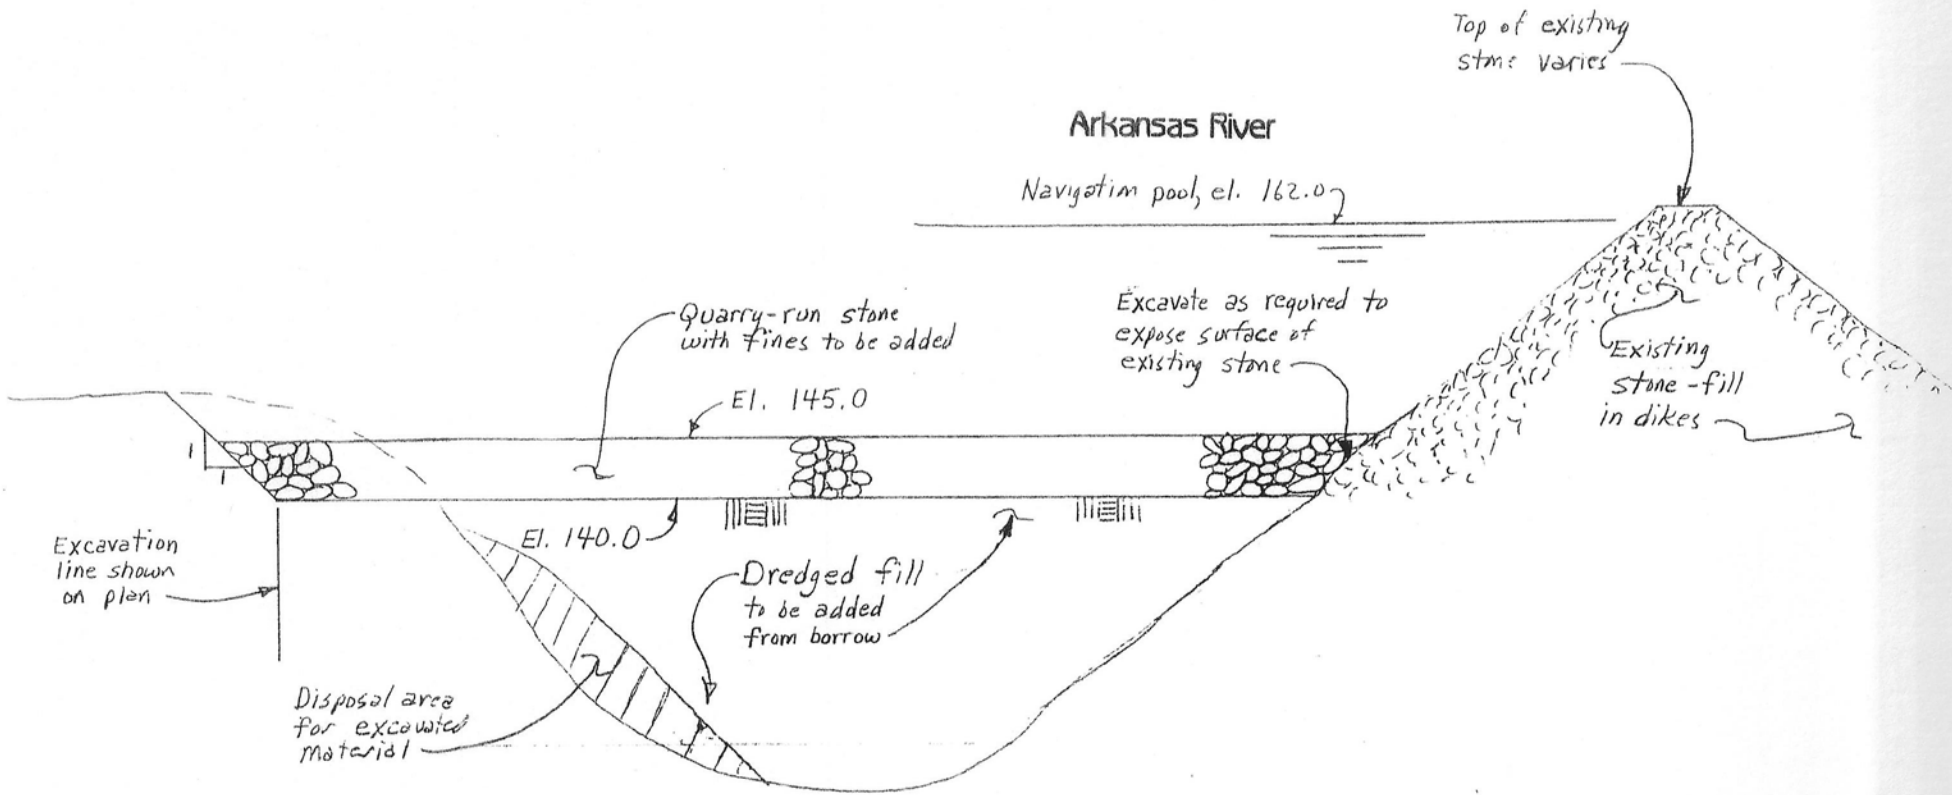 Top of existing
stone varies
Arkansas River
Navigation pool, el. 162.0
Quarry-run stone
with fines to be added
Excavate as required to
expose surface of
existing stone
Existing
stone-fill
in dikes
El. 145.0
1
1
El. 140.0
Excavation
line shown
on plan
Dredged fill
to be added
from borrow
Disposal area
for excavated
material